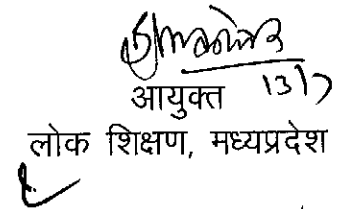 आयुक्त 13/7
लोक शिक्षण, मध्यप्रदेश